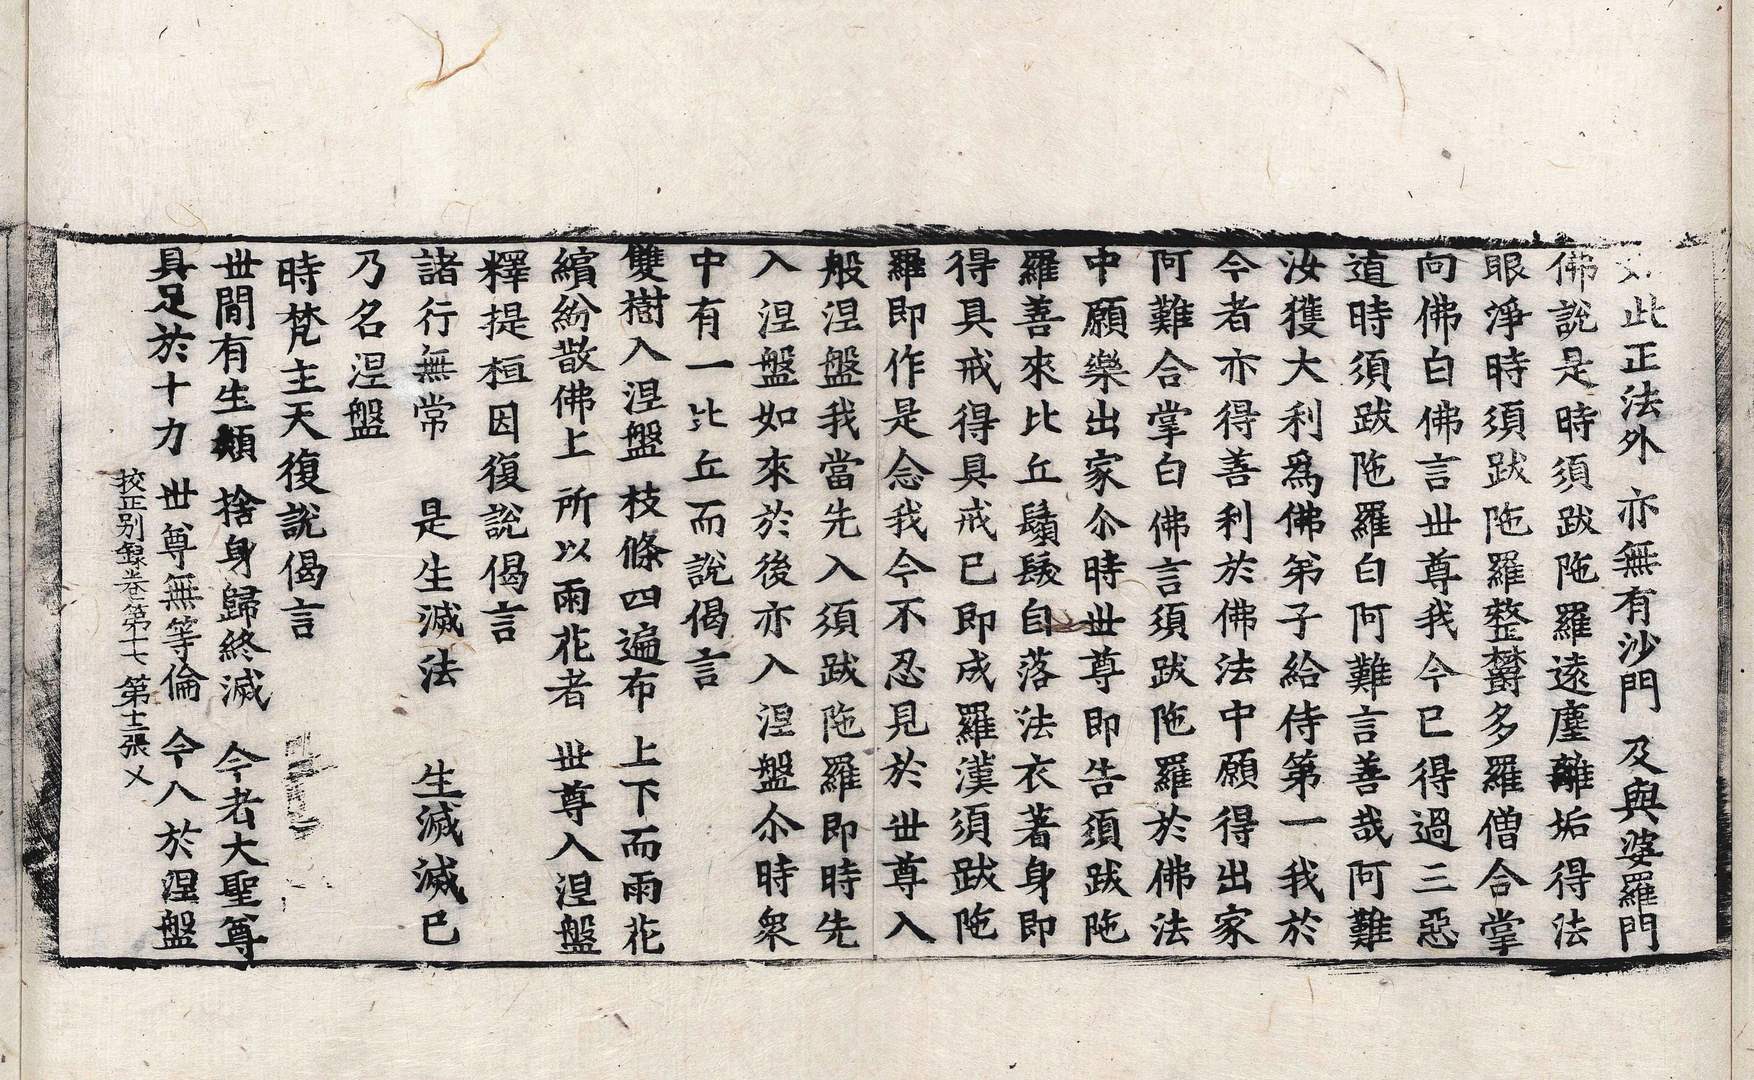 如此正法外 亦無有沙門 及與婆羅門
佛說是時須跋陁羅遠塵離垢得法
眼淨時須跋陁羅整欝多羅僧合掌
向佛白佛言世尊我今已得過三惡
道時須跋陁羅白阿難言善哉阿難
汝獲大利爲佛弟子給侍第一我於
今者亦得善利於佛法中願得出家
阿難合掌白佛言須跋陁羅於佛法
中願樂出家尒時世尊即告須跋陁
羅善來比丘鬚髮自落法衣著身即
得具戒得具戒已即成羅漢須跋陁
羅即作是念我今不忍見於世尊入
般涅盤我當先入須跋陁羅即時先
入涅盤如來於後亦入涅盤尒時衆
中有一比丘而說偈言
雙樹入涅盤 枝條四遍布 上下而雨花
繽紛散佛上 所以雨花者 世尊入涅盤
釋提桓因復說偈言
諸行無常 是生滅法 生滅滅已
乃名涅盤
時梵主天復說偈言
世間有生類 捨身歸終滅 今者大聖尊
具足於十力 世尊無等倫 今入於涅盤
挍正別錄卷第十七 第十三張 㐅